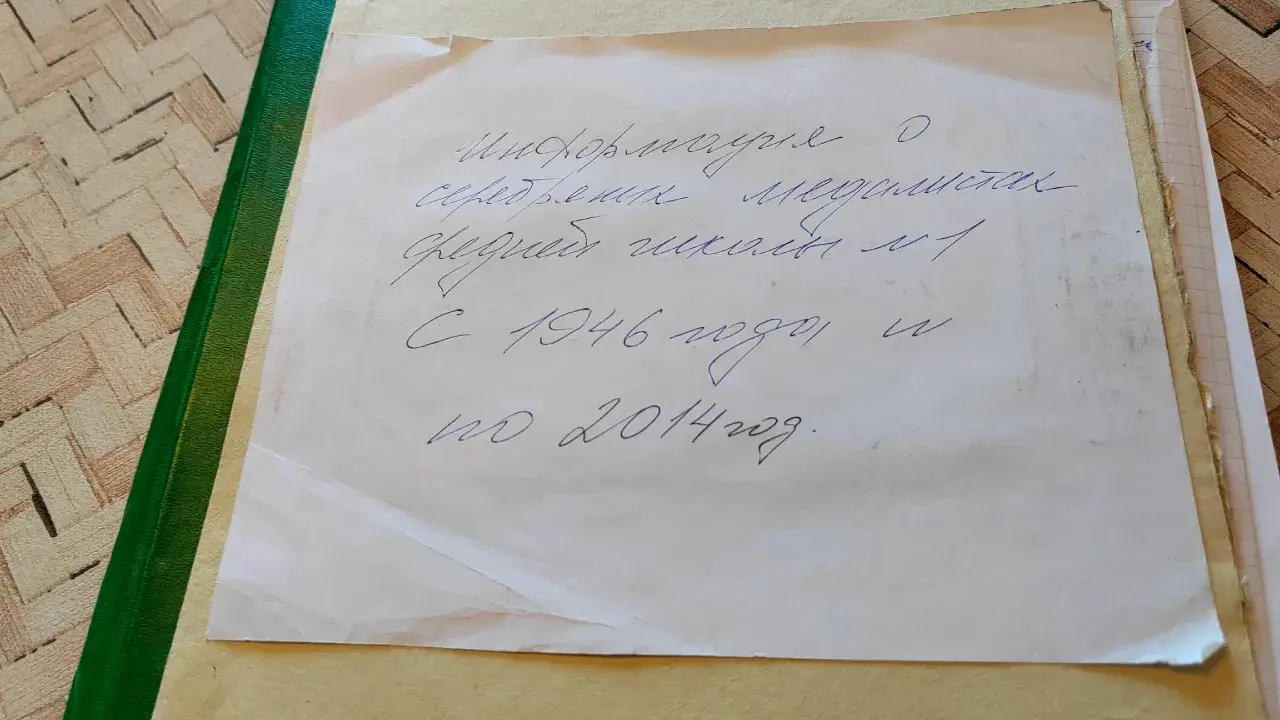 Информация о
серебряных медалистах
средней школы №1
с 1946 года и
по 2014 год.